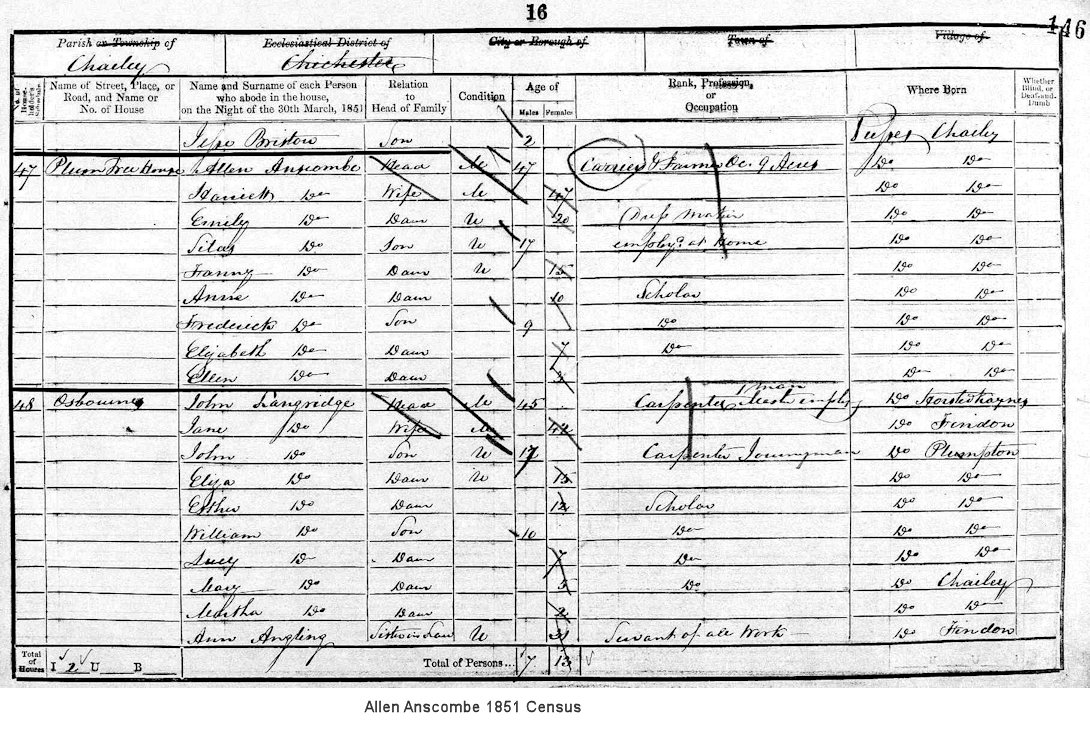 16
146
Parish or Township of Ecclesiastical District of City or Borough of Town of Village of
Chailey Chichester
No. of House-holder's Schedule Name of Street, Place, or Road, and Name or No. of House Name and Surname of each Person who abode in the house, on the Night of the 30th March, 1851 Relation to Head of Family Condition Age of Males Females Rank, Profession, or Occupation Where Born Whether Blind, or Deaf-and-Dumb
Bristow Son 2 Chailey
47 Plum Tree House Allen Anscombe Head M 47 Carrier & Farmer Oc. 9 Acres Do Do
Harriett Do Wife M 47 Do Do
Emily Do Daur U 20 Dress Maker Do Do
Silas Do Son U 17 employd at Home Do Do
Fanny Do Daur U 15 Do Do
Annie Do Daur 10 Scholar Do Do
Frederick Do Son 9 Do Do Do
Elizabeth Do Daur 7 Do Do Do
Ellen Do Daur Do Do
48 Osbourns John Langridge Head M 45 Carpenter 1 man Do Horsted Kaynes
Jane Do Wife M 42 Do Findon
John Do Son U 17 Carpenter Journyman Do Plumpton
Eliza Do Daur U 15 Do Do
Esther Do Daur 12 Scholar Do Do
William Do Son 10 Do Do Do
Lucy Do Daur 7 Do Do Do
Mary Do Daur 5 Do Do Chailey
Martha Do Daur 2 Do Do
Ann Angling Sister in Law U 31 Servant of all Work Do Findon
Total of Houses I 2 U B Total of Persons... 7 13
Allen Anscombe 1851 Census